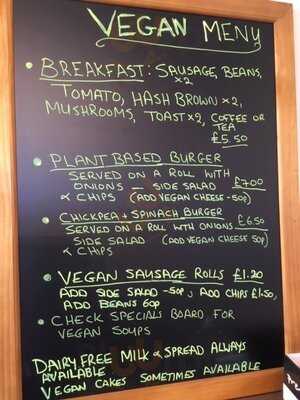 VEGAN MENU
BREAKFAST: SAUSAGE, BEANS,
x2
TOMATO, HASH BROWN x2,
MUSHROOMS, TOAST x2, COFFEE OR
TEA
£5.50
PLANT BASED BURGER
SERVED ON A ROLL WITH
ONIONS - SIDE SALAD £7.00
& CHIPS (ADD VEGAN CHEESE -50p)
CHICKPEA + SPINACH BURGER
SERVED ON A ROLL WITH ONIONS £6.50
SIDE SALAD (ADD VEGAN CHEESE 50p)
& CHIPS
VEGAN SAUSAGE ROLLS £1.20
ADD SIDE SALAD -50p, ADD CHIPS £1.50,
ADD BEANS 60p
CHECK SPECIALS BOARD FOR
VEGAN SOUPS
DAIRY FREE MILK & SPREAD ALWAYS
AVAILABLE
VEGAN CAKES SOMETIMES AVAILABLE